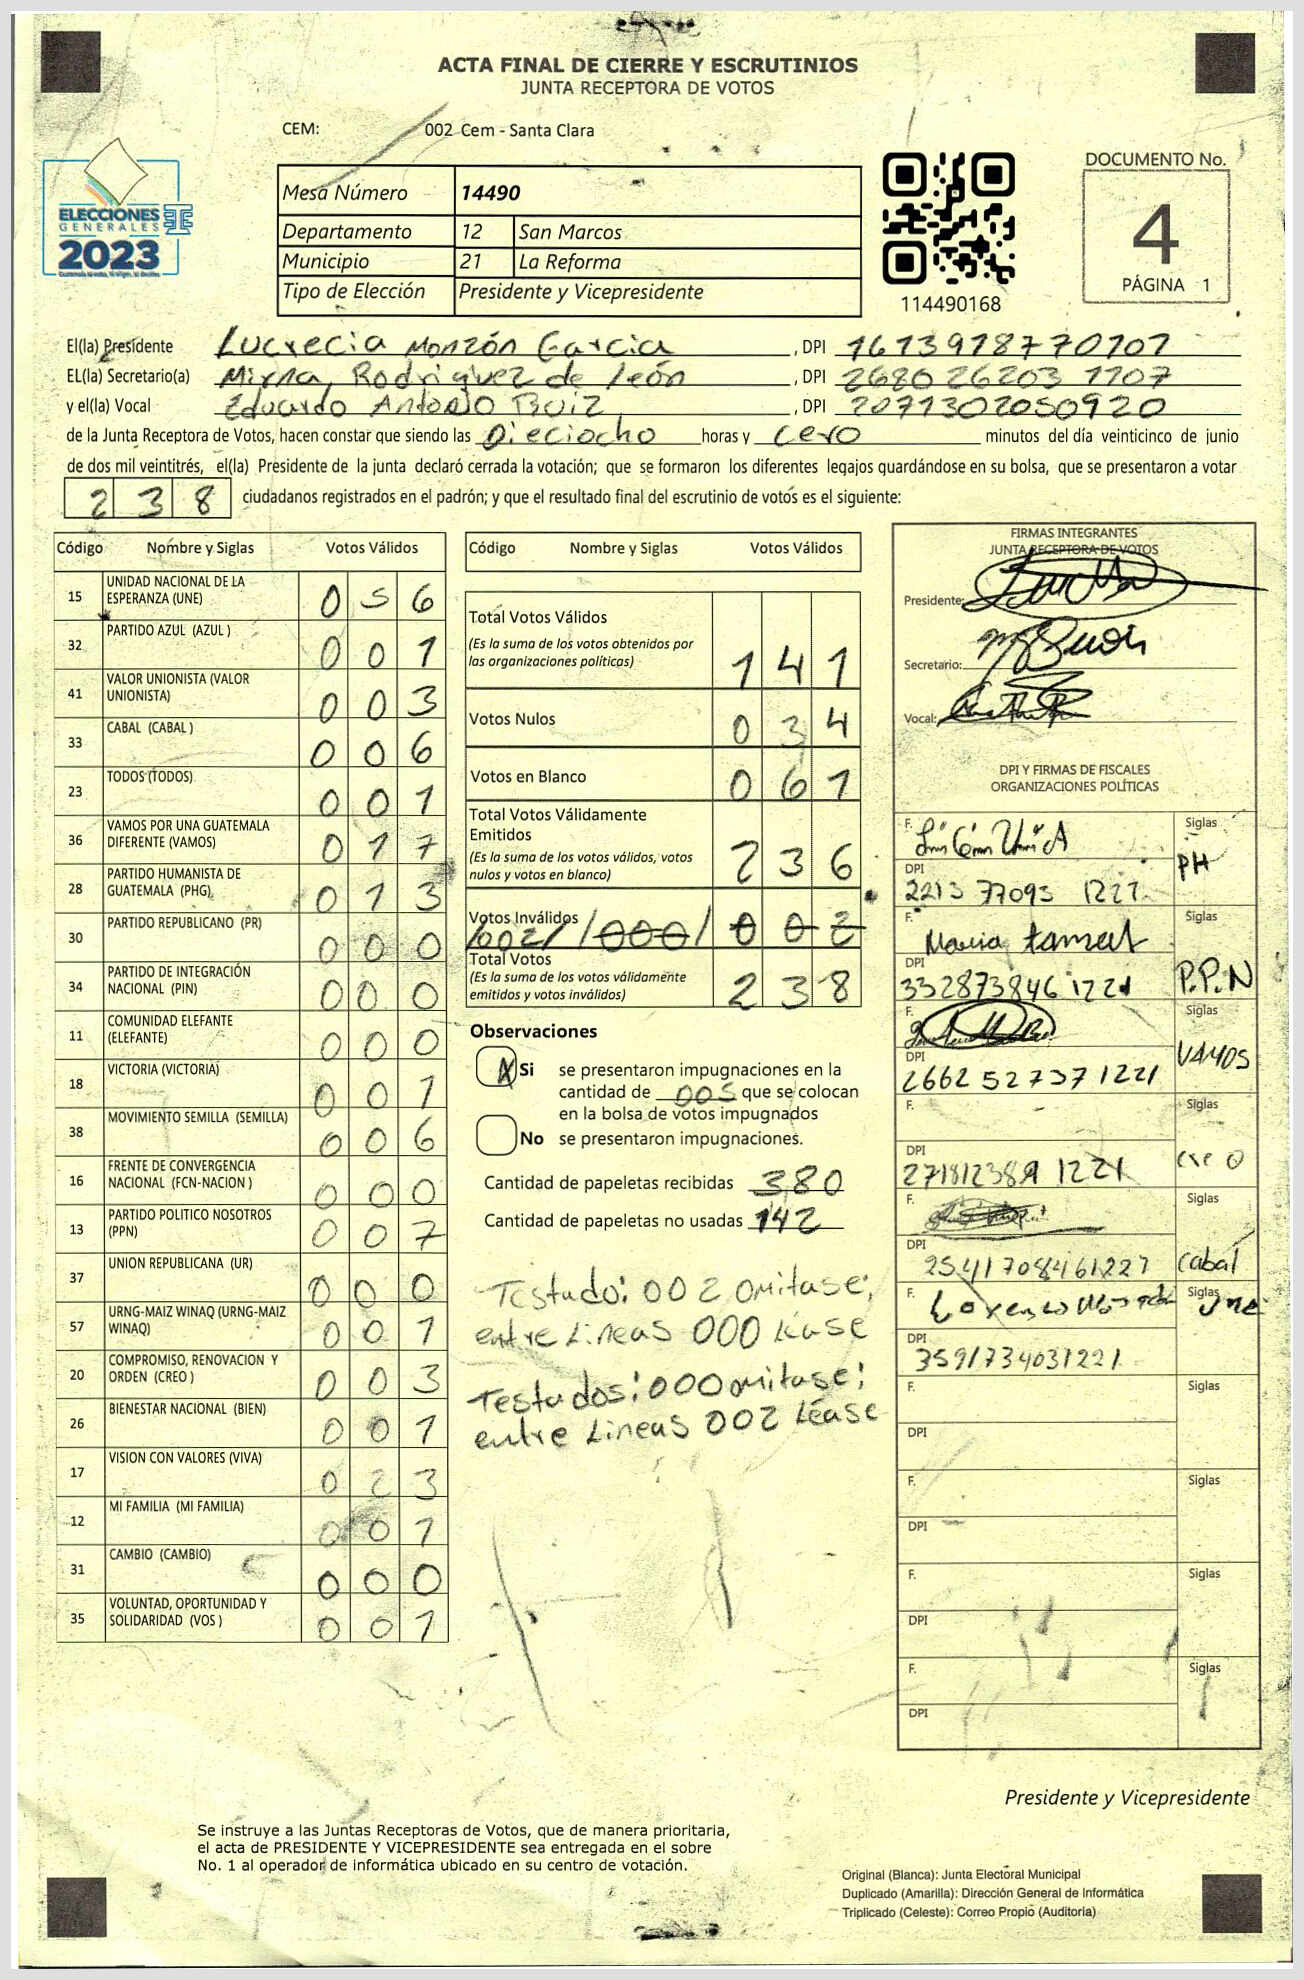 ACTA FINAL DE CIERRE Y ESCRUTINIOS
JUNTA RECEPTORA DE VOTOS
CEM: 002 Cem - Santa Clara
ELECCIONES
GENERALES
2023
Mesa Número 14490
Departamento 12 San Marcos
Municipio 21 La Reforma
Tipo de Elección Presidente y Vicepresidente
114490168
DOCUMENTO No.
4
PÁGINA 1
El(la) Presidente Lucrecia Monzón Garcia , DPI 1613918770101
EL(la) Secretario(a) Mirna Rodriguez de león , DPI 2680 26203 1207
y el(la) Vocal Eduardo Antonio Ruiz , DPI 2071302050920
de la Junta Receptora de Votos, hacen constar que siendo las Dieciocho horas y cero minutos del día veinticinco de junio
de dos mil veintitrés, el(la) Presidente de la junta declaró cerrada la votación; que se formaron los diferentes legajos guardándose en su bolsa, que se presentaron a votar
238 ciudadanos registrados en el padrón; y que el resultado final del escrutinio de votos es el siguiente:
Código Nombre y Siglas Votos Válidos
15 UNIDAD NACIONAL DE LA ESPERANZA (UNE) 056
32 PARTIDO AZUL (AZUL ) 001
41 VALOR UNIONISTA (VALOR UNIONISTA) 003
33 CABAL (CABAL ) 006
23 TODOS (TODOS) 001
36 VAMOS POR UNA GUATEMALA DIFERENTE (VAMOS) 017
28 PARTIDO HUMANISTA DE GUATEMALA (PHG) 013
30 PARTIDO REPUBLICANO (PR) 000
34 PARTIDO DE INTEGRACIÓN NACIONAL (PIN) 000
11 COMUNIDAD ELEFANTE (ELEFANTE) 000
18 VICTORIA (VICTORIA) 001
38 MOVIMIENTO SEMILLA (SEMILLA) 006
16 FRENTE DE CONVERGENCIA NACIONAL (FCN-NACION ) 000
13 PARTIDO POLITICO NOSOTROS (PPN) 007
37 UNION REPUBLICANA (UR) 000
57 URNG-MAIZ WINAQ (URNG-MAIZ WINAQ) 001
20 COMPROMISO, RENOVACION Y ORDEN (CREO ) 003
26 BIENESTAR NACIONAL (BIEN) 001
17 VISION CON VALORES (VIVA) 023
12 MI FAMILIA (MI FAMILIA) 001
31 CAMBIO (CAMBIO) 000
35 VOLUNTAD, OPORTUNIDAD Y SOLIDARIDAD (VOS ) 001
Código Nombre y Siglas Votos Válidos
Total Votos Válidos 141
(Es la suma de los votos obtenidos por
las organizaciones políticas)
Votos Nulos 034
Votos en Blanco 061
Total Votos Válidamente
Emitidos 236
(Es la suma de los votos válidos, votos
nulos y votos en blanco)
Votos Inválidos
/002/ /000/ 002
Total Votos 238
(Es la suma de los votos válidamente
emitidos y votos inválidos)
Observaciones
X Si se presentaron impugnaciones en la
cantidad de 005 que se colocan
en la bolsa de votos impugnados
No se presentaron impugnaciones.
Cantidad de papeletas recibidas 380
Cantidad de papeletas no usadas 142
Testado: 002 Omitase;
entre Lineas 000 Léase
Testados: 000 omitase;
entre Lineas 002 Léase
FIRMAS INTEGRANTES
JUNTA RECEPTORA DE VOTOS
Presidente:
Secretario:
Vocal:
DPI Y FIRMAS DE FISCALES
ORGANIZACIONES POLÍTICAS
F. Siglas PH
DPI 2213 77093 1221
F. Siglas P.P.N
DPI 332873846 1221
F. Siglas VAMOS
DPI 2662 52737 1221
F. Siglas
DPI
F. Siglas cabal
DPI 2541708461227
F. Siglas une
DPI 3591734031221
F. Siglas
DPI
F. Siglas
DPI
F. Siglas
DPI
F. Siglas
DPI
Presidente y Vicepresidente
Se instruye a las Juntas Receptoras de Votos, que de manera prioritaria,
el acta de PRESIDENTE Y VICEPRESIDENTE sea entregada en el sobre
No. 1 al operador de informática ubicado en su centro de votación.
Original (Blanca): Junta Electoral Municipal
Duplicado (Amarilla): Dirección General de Informática
Triplicado (Celeste): Correo Propio (Auditoria)